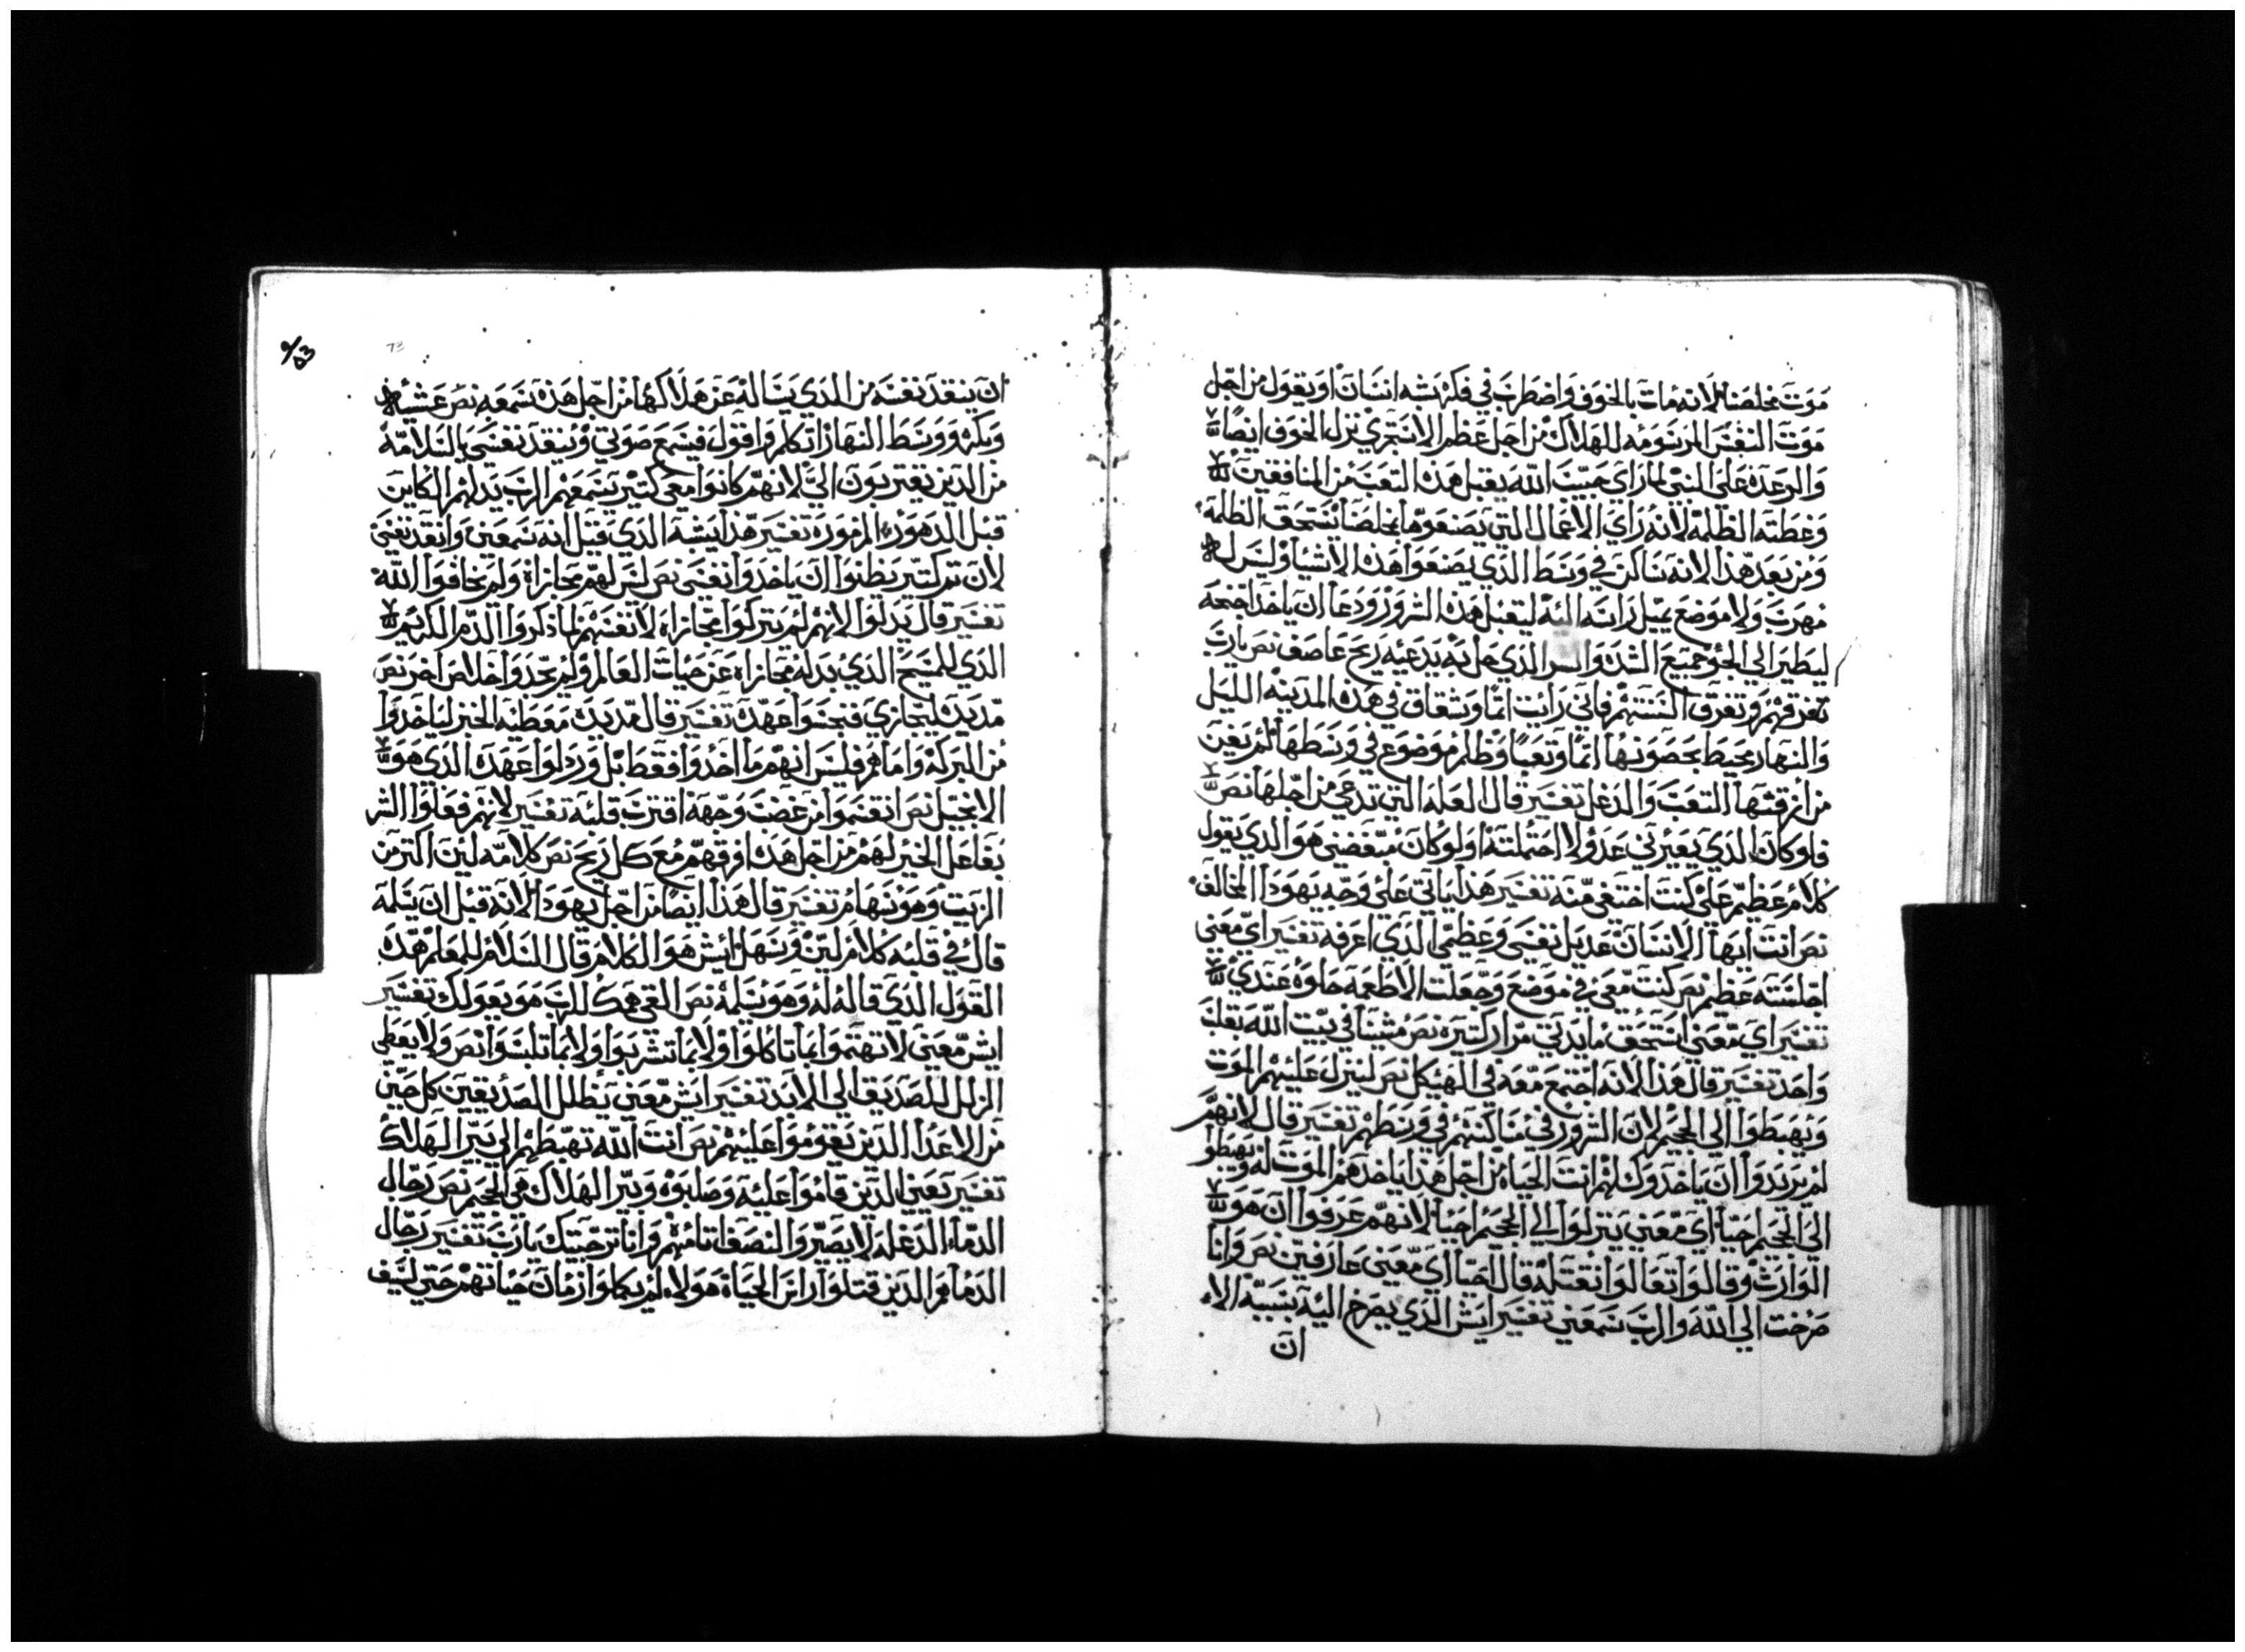 موت مخلصنا لانه مات بالخوف واضطرب في فكره شبه انسان او يقول من اجل
موت النفس المرسومه للهلاك من اجل عظم الاستجري نزل الخوف ايضا
والرعده على النبي لما راي حبيب الله يقبل هذه التعب من المنافقين
وغطته الظلمة لانه راي الاعمال التي يصنعوها بمخلصنا تستحق الظلمة
ومن بعد هذا لانه ساكن في وسط الذي يصنعوا هذه الاشيا وليس له
مهرب ولا موضع يميل راسه اليه ليقبل هذه الشرور ودعا ان ياخد اجنحه
ليطير الي الجو جميع الشده و الذي حل به يدعيه ريح عاصف نص يارب
تغرقهم وتفرق السنتهم فاني رايت اثما وشقاق في هذه المدينه الليل
والنهار يحيط بحصونها اثما وتعبا وظلم موضوع في وسطها لم يفن
من ازقتها التعب والدغل تفسير قال العله التي تدعي من اجلها نص
فلو كان الذي يعيرني عدو لا احتملته ولو كان مبغضي هو الذي يقول
كلام عظيم علي كنت اختفي منه تفسير هذا ياتي على وجه يهودا المخالف
نص انت ايها الانسان عديل نفسي وعظمي الذي اعرفه تفسير اي معنى
اجلسته عظم نص كنت معي في موضع وجعلت الاطعمه حلوه عندي
تفسير اي معنى استحق مايدتي مرار كتيره نص مشينا في بيت الله بقلب
واحد تفسير قال هذا لانه اجتمع معه في الهيكل نص لينزل عليهم الموت
ويهبطوا الي الجحيم لان الشرور في مساكنهم في وسطهم تفسير قال لانهم
لم يريدوا ان ياخدوك لهم انت الحياه من اجل هذا ياخدهم الموت له ويهبطوا
الى الجحيم احيا اي معنى ينزلوا الي الجحيم احيا لانهم عرفوا ان هو
الوارث وقالوا تعالوا نقتله قال احيا اي معنى عارفين نص وانا
صرخت الي الله والرب سمعني تفسير ايش الذي يصرخ اليه بسببه الا
ان
ان ينقد نفسه من الذي يساله عن هلاكها من اجل هذه سمعه نص عشيه
وبكره ووسط النهار اتكلم واقول فيسمع صوتي وينقد نفسي بالسلامه
من الذين يقتربون الي لانهم كانوا معي كتير يسمعهم الرب يدلهم الكاين
قبل الدهور المزموره تفسير هذا يشبه الذي قيل انه سمعني وانقد نفسي
لان تم كتير يظنوا ان ياخدوا نفسي نص ليس لهم مجازاة ولم يخافوا الله
تفسير قال يدلوا لانهم لم يتركوا مجازاه لانفسهم لما ذكروا الدم الكريم
الذي للمسيح الذي بدله مجازاه عن حيات العالم ولم يجدوا خلاص اخر نص
مد يده ليجازي فنجسوا عهده تفسير قال مد يده معطيه الخبز لياخدوا
من البركه واما هم فليس انهم ما اخدوا فقط بل وردلوا عهده الذي هو
الانجيل نص انقسموا من غضب وجهه اقترب قلبه تفسير لانهم فعلوا الشر
بفاعل الخير لهم من اجل هذا فرقهم مع كل ريح نص كلامه لين اكتر من
الزيت وهو سهام تفسير قال هذا ايضا من اجل يهودا لانه قبل ان يسلمه
قال في قلبه كلام لين وسهل ايش هو الكلام قال السلام للمعلم هذه
القول الذي قاله له وهو يسلمه نص القي همك للرب هو يعولك تفسير
ايش معنى لا تهتموا بما تاكلوا ولا بما تشربوا ولا بما تلبسوا نص ولا يعطي
الزلل للصديق الي الابد تفسير ايش معنى يظلل للصديقين كل حين
من الاعدا الذين يقوموا عليهم نص انت الله تهبطهم الي بير الهلاك
تفسير يعني الذين قاموا عليه وصلبوه وبير الهلاك هي الجحيم نص رجال
الدما الدغله لا يصيروا النصف ايامهم وانا ترجيتك يارب تفسير رجال
الدما هم الذين قتلوا راس الحياة هولاء لم يكملوا زمان حياتهم حتي ليف